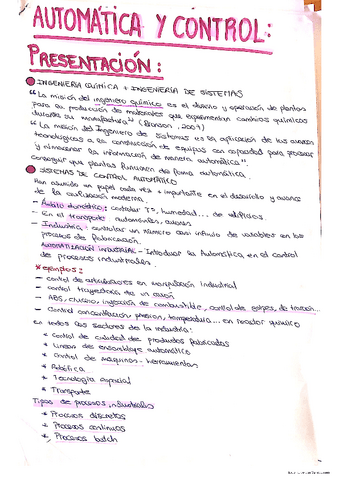 AUTOMÁTICA Y CONTROL:
PRESENTACIÓN:
INGENIERÍA QUÍMICA + INGENIERÍA DE SISTEMAS
"La misión del ingeniero químico es el diseño y operación de plantas
para la producción de materiales que experimentan cambios químicos
durante su manufactura"
"La misión del Ingeniero de Sistemas es la aplicación de los avances
tecnológicos a la construcción de equipos con capacidad para procesar
y almacenar la información de manera automática".
conseguir que plantas funcionen de forma automática.
SISTEMAS DE CONTROL AUTOMÁTICO
Han adquirido un papel cada vez + importante en el desarrollo y avance
de la civilización moderna.
- Ámbito doméstico: controlar Tª, humedad... de edificios.
- En el transporte: automóviles, aviones
- Industria: controlar un número casi infinito de variables en los
procesos de fabricación.
AUTOMATIZACIÓN INDUSTRIAL - Introducir la Automática en el control
de procesos industriales.
* ejemplos:
- control de articulaciones en manipulación industrial
- control trayectoria de un avión
- ABS, crucero, inyección de combustible, control de golpes, de tracción...
- Control concentración, presión, temperatura... en reactor químico
en todos los sectores de la industria:
* Control de calidad de productos fabricados
* Líneas de ensamblaje automático
* Control de máquinas-herramientas
* Robótica
* Tecnología espacial
* Transporte
Tipos de procesos industriales
* Procesos discretos
* Procesos continuos
* Procesos batch